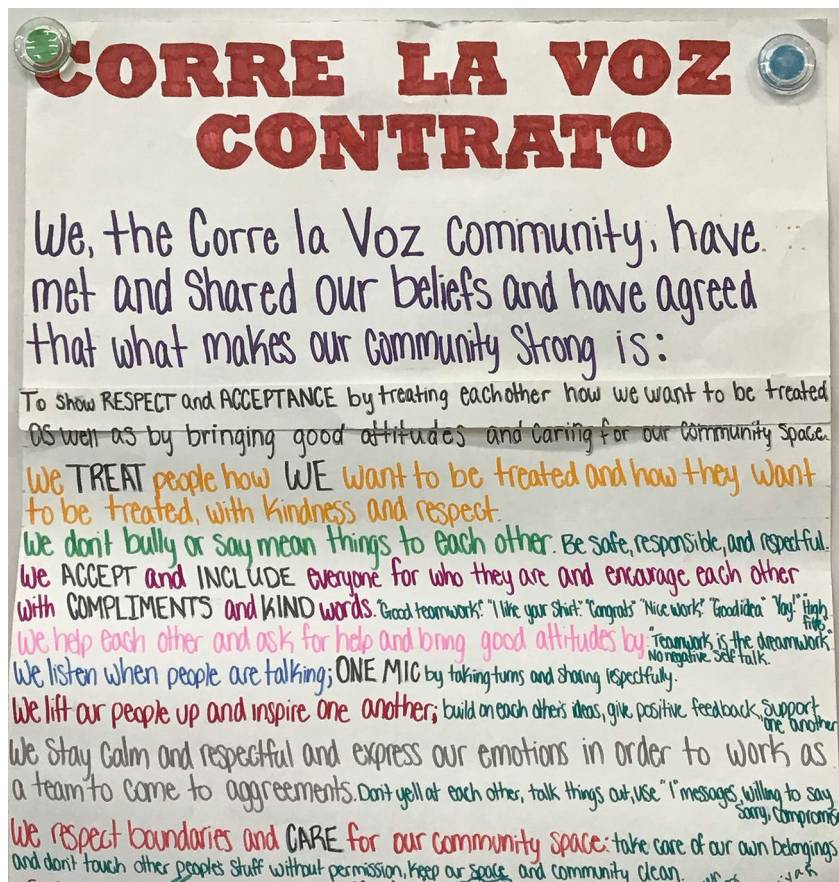 CORRE LA VOZ
CONTRATO
We, the Corre la Voz Community, have
met and Shared our beliefs and have agreed
that what makes our Community Strong is:
To show RESPECT and ACCEPTANCE by treating eachother how we want to be treated
as well as by bringing good attitudes and caring for our community space.
We TREAT people how WE want to be treated and how they want
to be treated, with kindness and respect.
We don't bully or say mean things to each other. Be safe, responsible, and respectful.
We ACCEPT and INCLUDE everyone for who they are and encourage each other
with COMPLIMENTS and KIND words. "Good teamwork!" "I like your shirt" "Congrats" "Nice work" "Good idea" "Yay!" "High
fives"
We help each other and ask for help and bring good attitudes by: "Teamwork is the dreamwork
No negative self talk.
We listen when people are talking; ONE MIC by taking turns and sharing respectfully.
We lift our people up and inspire one another; build on each other's ideas, give positive feedback, support
one another
We Stay Calm and respectful and express our emotions in order to work as
a team to come to aggreements. Don't yell at each other, talk things out, use "I" messages, willing to say
sorry, compromise
We respect boundaries and CARE for our community space: take care of our own belongings
and don't touch other people's stuff without permission, keep our space and community clean.